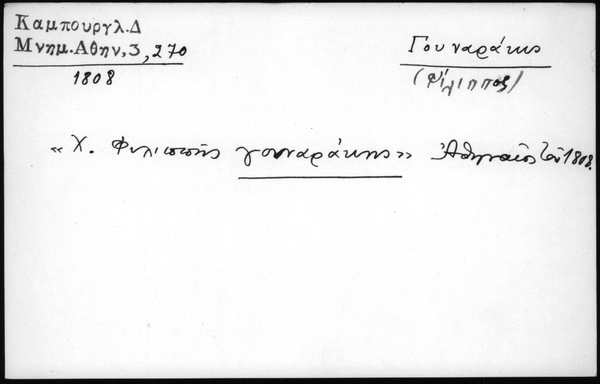 Καμπουργλ.Δ
Μνημ.Αθην,3,270
1808
Γουναράκης
(Φίλιππος)
«Χ. Φιλιππής γουναράκης» Ἀθηναῖος τοῦ 1808.